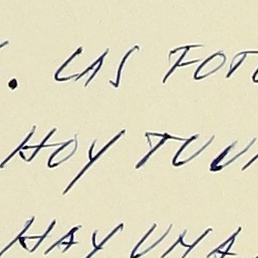 . LAS FOTO
HOY TUVI
HAY UNA